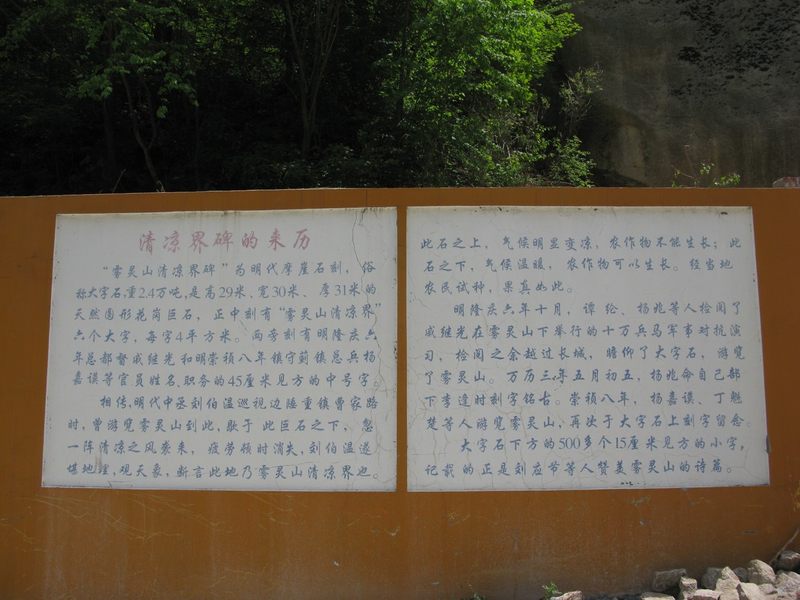 清凉界碑的来历
“雾灵山清凉界碑”为明代摩崖石刻，俗
称大字石,重2.4万吨,是高29米、宽30米、厚31米的
天然圆形花岗巨石，正中刻有“雾灵山清凉界”
六个大字，每字4平方米。两旁刻有明隆庆六
年总都督戚继光和明崇祯八年镇守蓟镇总兵杨
嘉谟等官员姓名、职务的45厘米见方的中号字。
相传，明代中丞刘伯温巡视边陲重镇曹家路
时，曾游览雾灵山到此，歇于此巨石之下，忽
一阵清凉之风袭来，疲劳顿时消失，刘伯温遂
堪地理，观天象，断言此地乃雾灵山清凉界也。
此石之上，气候明显变凉，农作物不能生长；此
石之下，气候温暖，农作物可以生长。经当地
农民试种，果真如此。
明隆庆六年十月，谭纶、杨兆等人检阅了
戚继光在雾灵山下举行的十万兵马军事对抗演
习，检阅之余越过长城，瞻仰了大字石，游览
了雾灵山。万历三年五月初五，杨兆命自己部
下李逢时刻字铭古。崇祯八年，杨嘉谟、丁魁
楚等人游览雾灵山，再次于大字石上刻字留念。
大字石下方的500多个15厘米见方的小字，
记载的正是刘应节等人赞美雾灵山的诗篇。